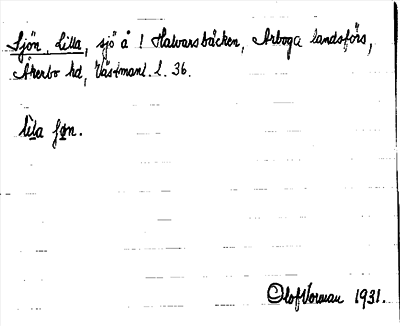 Sjön, Lilla, sjö å 1 Halvarsbäcken, Arboga landsförs,
Åkerbo hd, Västmanl. l. 36.
lila sjøn.
Olof Norman 1931.